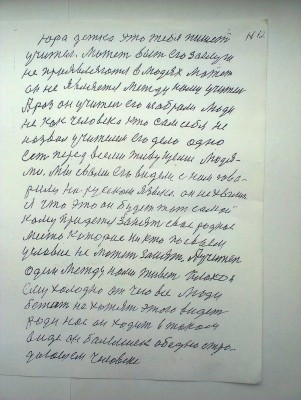 Юра детка это тебя пишет N 12
учител. Может быт его заслуги
не приявляются в людях может
он не является между нами учител
Я раз он учител его избрали люди
не как человека кто сам себя не
назвал учителем его дело одно
сот перед всеми живущими людя-
ми. Мы были его видели с ним гова-
рили на руском языке. он не хвалил
я что это он будет тот самый
кому придется занят свае родное
место которое никто по своем
условие не может занят. А учител
один между нами живет плохо
ему холодно от чего все люди
бегает не хотят этого видет
роди нас он ходит в таком
виде он болеется обидно стра-
дивает человек